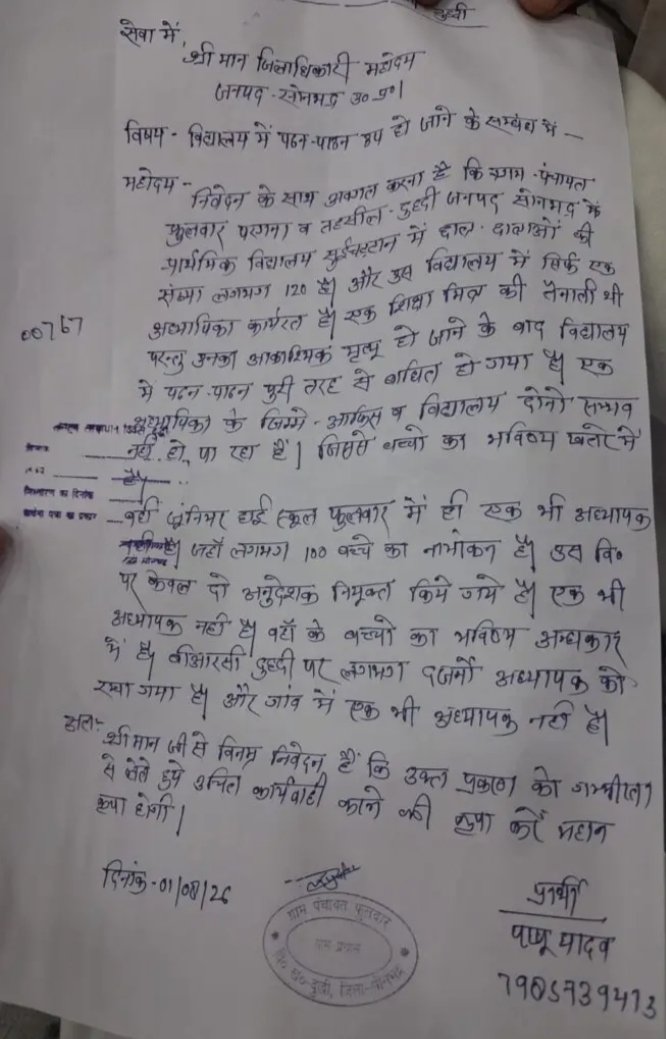 दुद्धी
सेवा में,
श्री मान जिलाधिकारी महोदय
जनपद - सोनभद्र उ० प्र०।
विषय - विद्यालय में पठन-पाठन ठप हो जाने के सम्बंध में –
महोदय –
निवेदन के साथ अवगत करना है कि ग्राम - पंचायत
फुलवार परगना व तहसील - दुद्धी जनपद सोनभद्र के
प्राथमिक विद्यालय में छात्र - छात्राओं की
संख्या लगभग 120 है। और उस विद्यालय में सिर्फ एक
अध्यापिका कार्यरत है। एक शिक्षा मित्र की तैनाती थी
परन्तु उनका आकस्मिक मृत्यू हो जाने के बाद विद्यालय
में पठन - पाठन पुरी तरह से बाधित हो गया है। एक
अध्यापिका के जिम्मे - आफिस व विद्यालय दोनो सम्भव
नहीं हो पा रहा है। जिससे बच्चो का भविष्य खतरे में
है।
वही जूनियर हाई स्कूल फुलवार में ही एक भी अध्यापक
नहीं है। जहाँ लगभग 100 बच्चे का नामांकन है। उस वि०
पर केवल दो अनुदेशक नियुक्त किये गये है। एक भी
अध्यापक नहीं है। वहाँ के बच्चो का भविष्य अन्धकार
में है। बीआरसी दुद्धी पर लगभग दर्जनों अध्यापक को
रखा गया है। और गांव में एक भी अध्यापक नहीं है।
अतः-
श्रीमान जी से विनम्र निवेदन है कि उक्त प्रकरण को गम्भीरता
से लेते हुये उचित कार्यवाही करने की कृपा करें महान
कृपा होगी।
00767
दिनांक - 01/08/26
ग्राम पंचायत फुलवार
ग्राम प्रधान
वि० ख०-दुद्धी, जिला-सोनभद्र
प्रार्थी
पप्पू यादव
7905939413